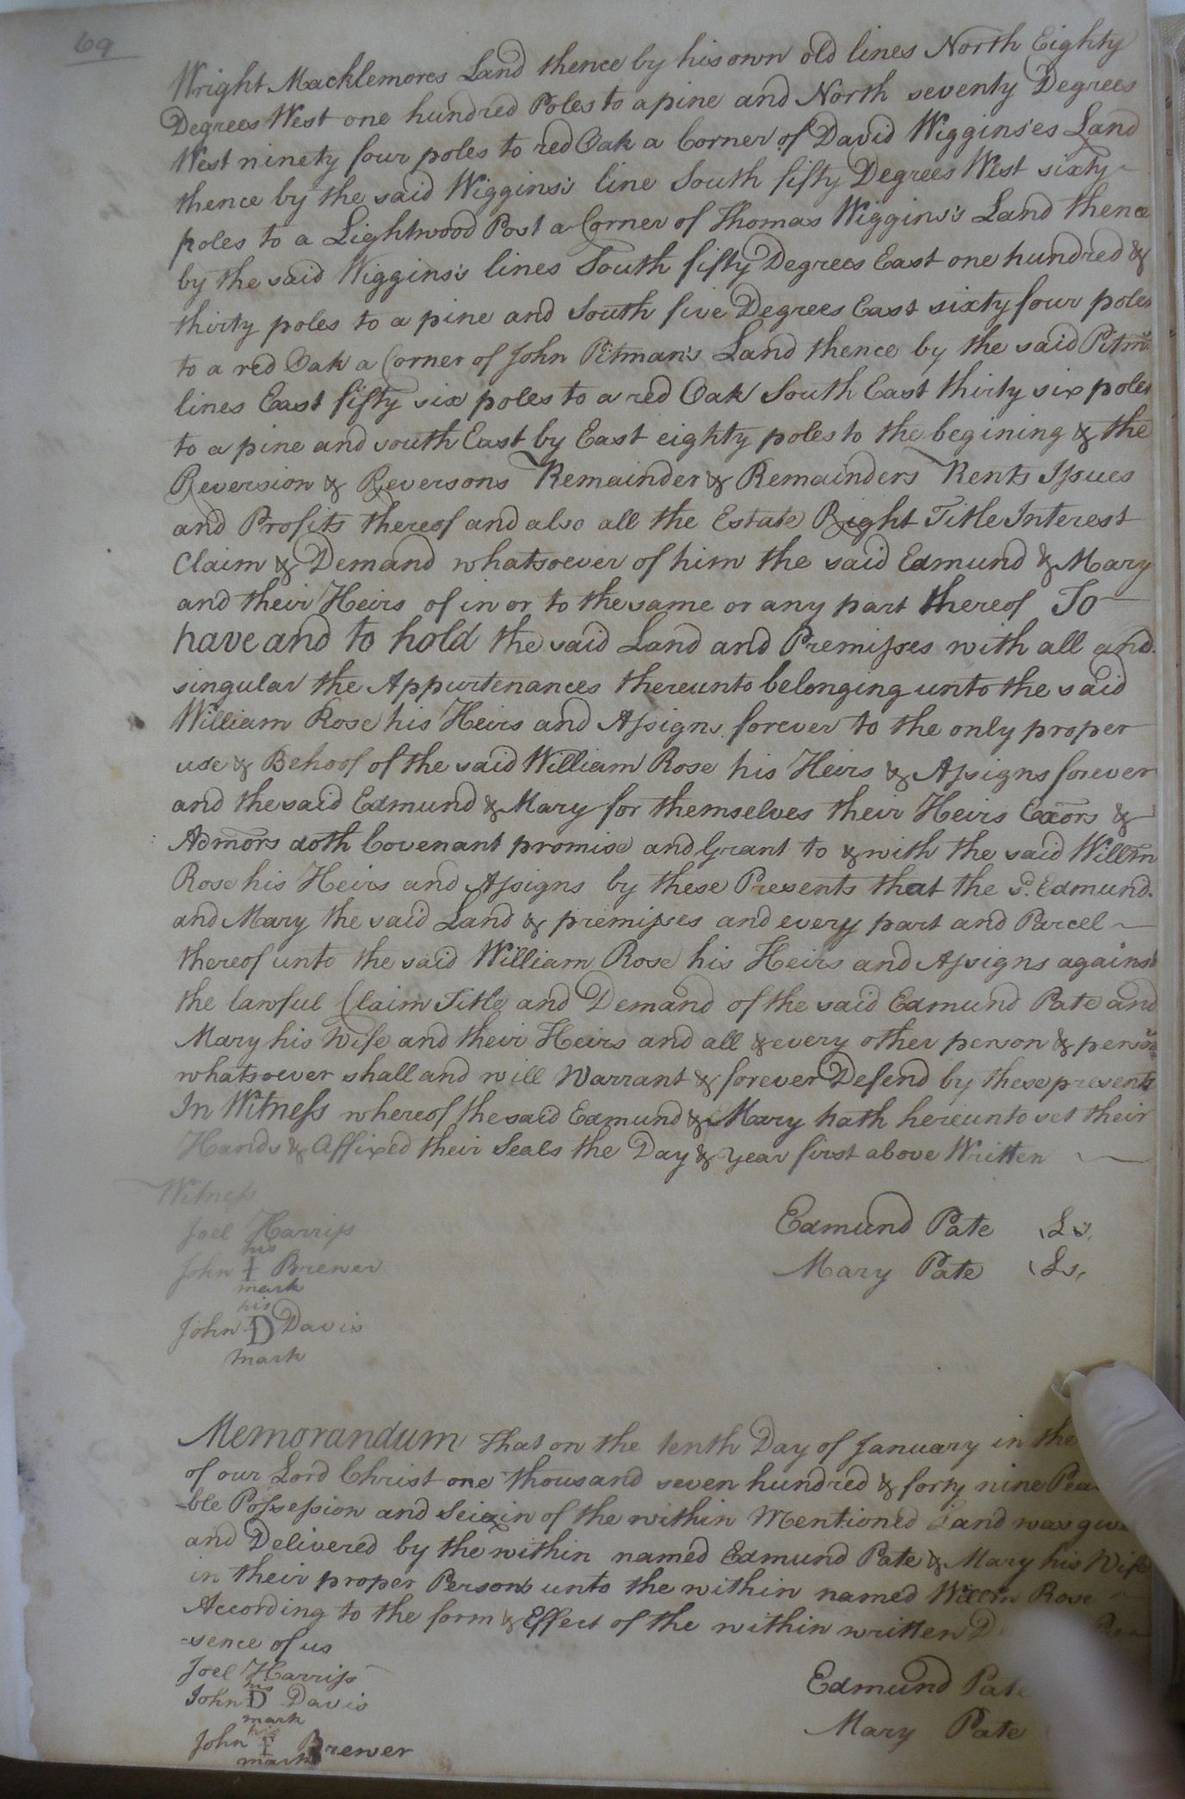 69
Wright Macklemores Land thence by his own old lines North Eighty
Degrees West one hundred Poles to a pine and North seventy Degrees
West ninety four poles to red Oak a Corner of David Wiggins'es Land
thence by the said Wiggins's line South fifty Degrees West sixty
poles to a Lightwood Post a Corner of Thomas Wiggins's Land thence
by the said Wiggins's lines South fifty Degrees East one hundred &
thirty poles to a pine and South five Degrees East sixty four poles
to a red Oak a Corner of John Pitman's Land thence by the said Pitm̄s
lines East fifty six poles to a red Oak South East thirty six poles
to a pine and south East by East eighty poles to the begining & the
Reversion & Reversons Remainder & Remainders Rents Issues
and Profits thereof and also all the Estate Right Title Interest
Claim & Demand whatsoever of him the said Edmund & Mary
and their Heirs of in or to the same or any part thereof To
have and to hold the said Land and Premisses with all and
singular the Appurtenances thereunto belonging unto the said
William Rose his Heirs and Assigns forever to the only proper
use & Behoof of the said William Rose his Heirs & Assigns forever
and the said Edmund & Mary for themselves their Heirs Exōrs &
Admōrs doth Covenant promise and Grant to & with the said Willm̄
Rose his Heirs and Assigns by these Presents that the sd. Edmund
and Mary the said Land & premisses and every part and Parcel
thereof unto the said William Rose his Heirs and Assigns against
the lawful Claim Title and Demand of the said Edmund Pate and
Mary his Wife and their Heirs and all & every other person & persōs
whatsoever shall and will Warrant & forever Defend by these presents
In Witness whereof the said Edmund & Mary hath hereunto set their
Hands & Affixed their Seals the Day & year first above Written
Witness
Joel Harriss
Edmund Pate Ls.
his
John I Brewer
mark
Mary Pate Ls.
his
John D Davis
mark
Memorandum that on the tenth Day of January in the
of our Lord Christ one thousand seven hundred & forty nine Pea
-ble Possession and Seizin of the within Mentioned Land was giv
and Delivered by the within named Edmund Pate & Mary his Wife
in their proper Persons unto the within named Willm̄ Rose
According to the form & Effect of the within written D
-sence of us
Joel Harriss
his
John D Davis
mark
Edmund Pate
his
John I Brewer
mark
Mary Pate